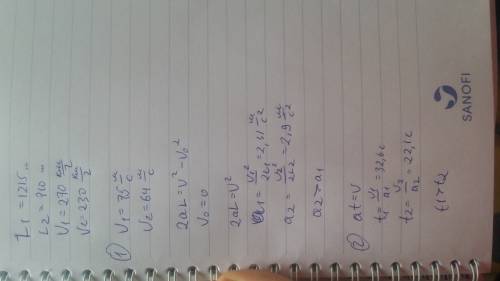 L1 = 1215 м
L2 = 710 м
V1 = 270 км/ч
V2 = 230 км/ч
① V1 = 75 м/с
V2 = 64 м/с
2aL = V² - V0²
V0 = 0
2aL = V²
a1 = V1²/2L1 = 2,31 м/с²
a2 = V2²/2L2 = 2,9 м/с²
a2 > a1
② at = V
t1 = V1/a1 = 32,6 с
t2 = V2/a2 = 22,1 с
t1 > t2
SANOFI